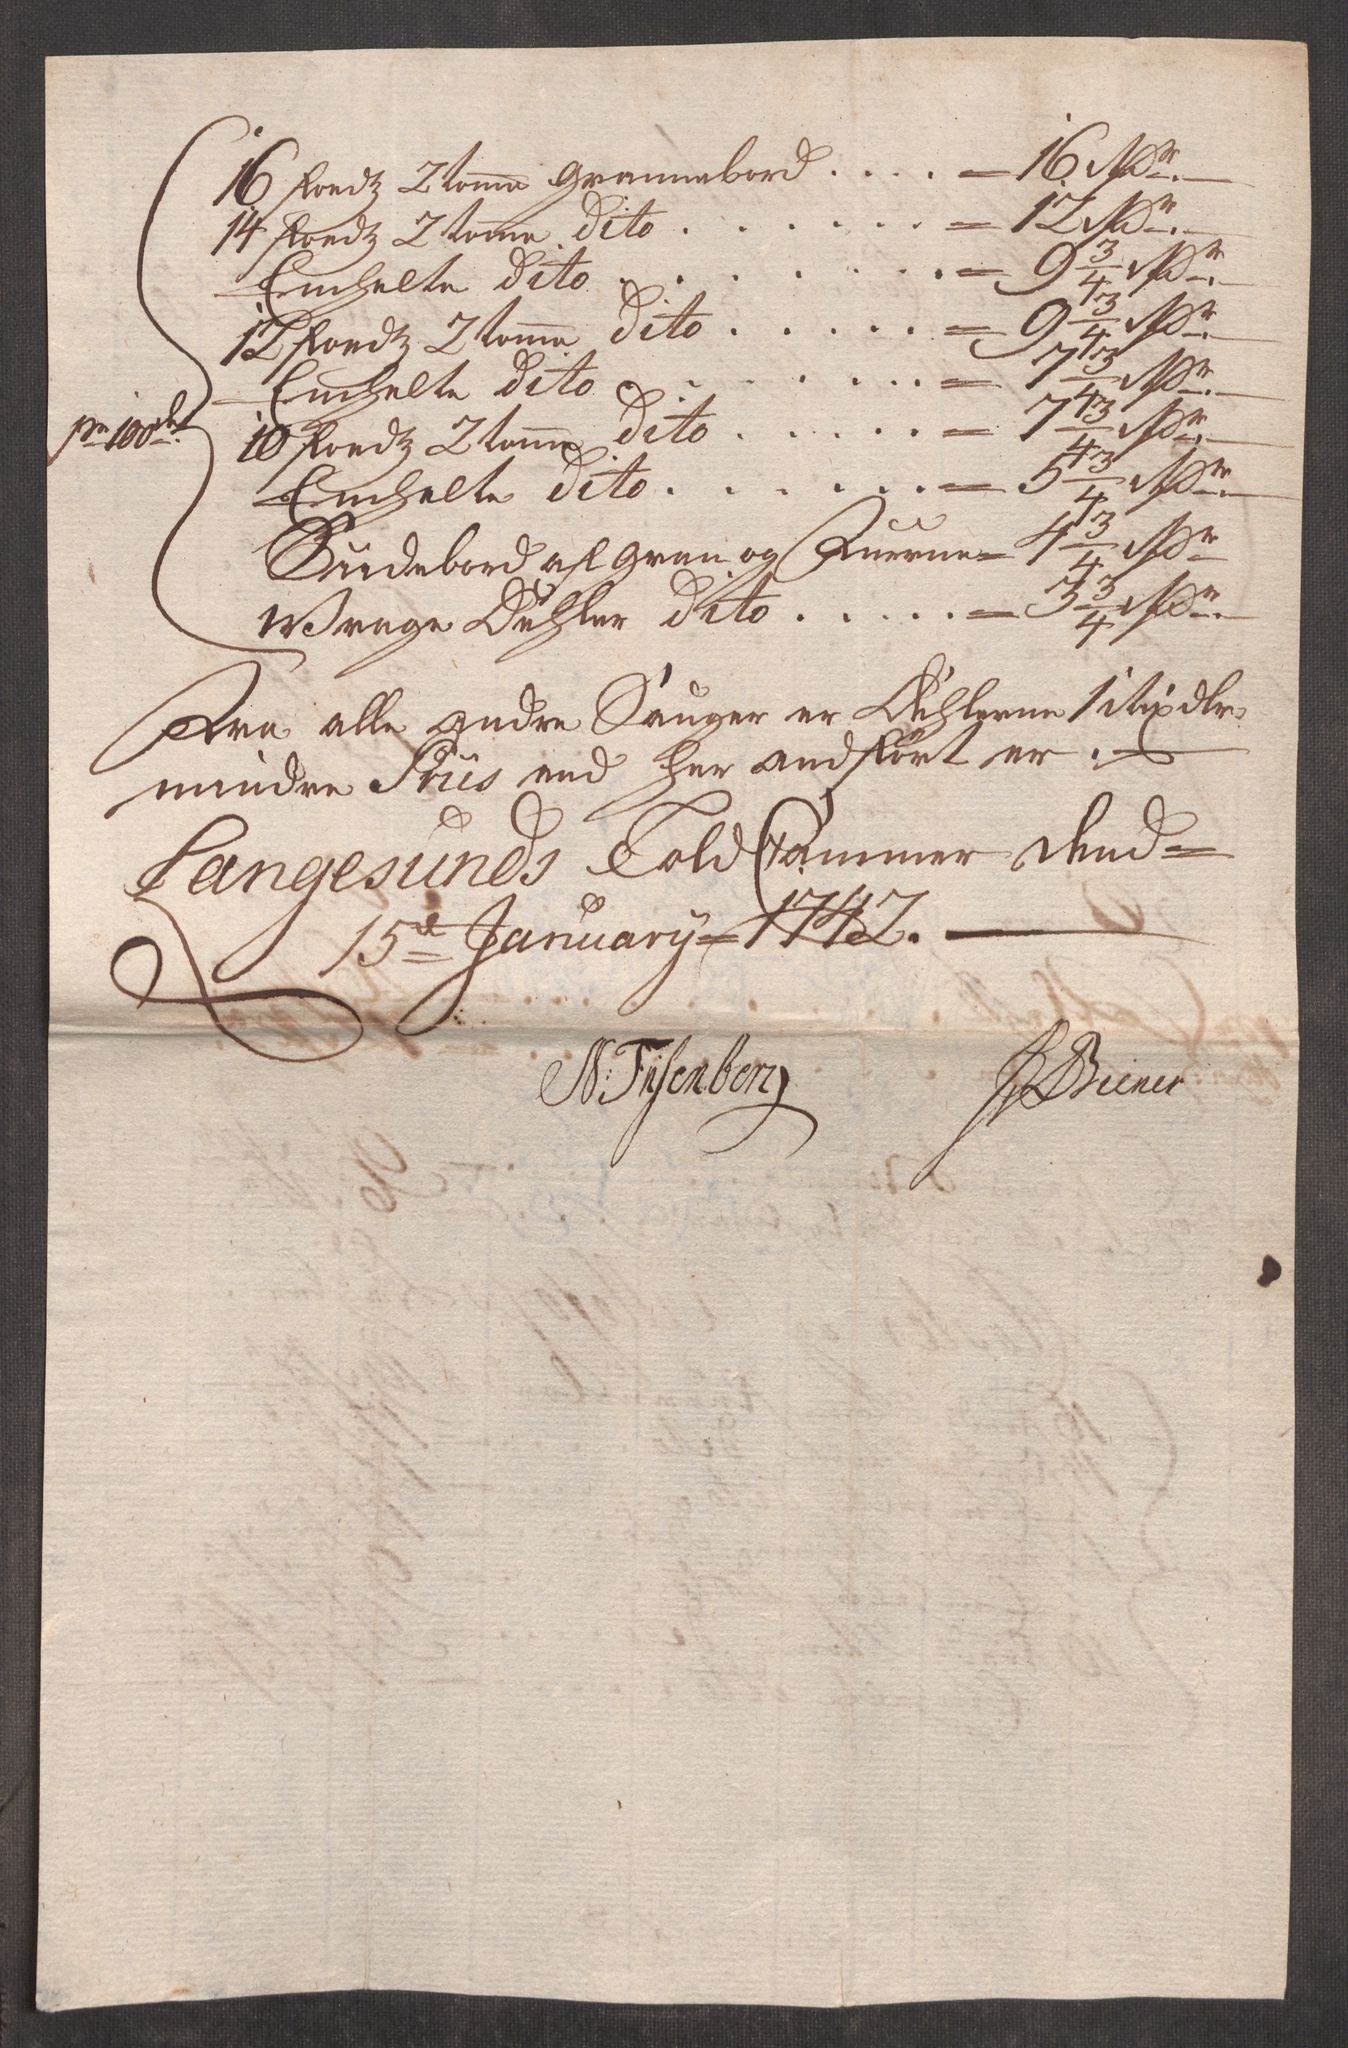 16 foedtz 2 tome Grannebord . . . . = 16 Rdr.
14 foedtz 2 tome dito . . . . . . . = 12 Rdr.
Enchelte dito . . . . . . . . = 9 3/4 Rdr.
12 foedtz 2 tome dito . . . . . . = 9 3/4 Rdr.
Enchelte dito . . . . . . . . = 7 3/4 Rdr.
pr 100de
10 foedtz 2 tome dito . . . . . . = 7 3/4 Rdr.
Enchelte dito . . . . . . . = 5 3/4 Rdr.
Suidebord af Gran og Fuerne = 4 3/4 Rdr
Wrage Dehler dito . . . . . = 3 3/4 Rdr.
Fra alle andre Sauger er Dehlerne 1 slixdlr
mindre Priis end her andført er .
Langesunds Told Cammer dend =
15de January = 1742.
N: Fisenberg
Biener